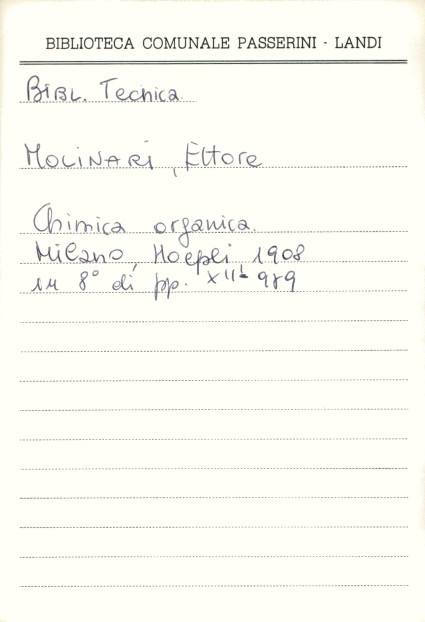 BIBLIOTECA COMUNALE PASSERINI - LANDI
BIBL. Tecnica
MOLINARI, Ettore
Chimica organica.
Milano, Hoepli 1908
in 8° di pp.